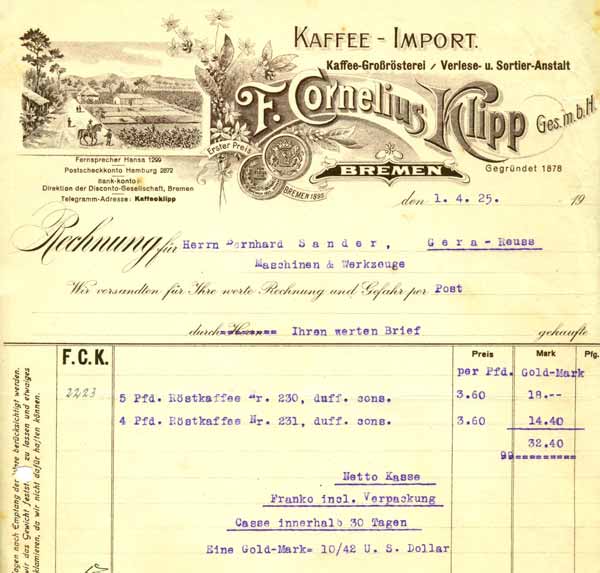 KAFFEE - IMPORT.
Kaffee-Großrösterei / Verlese- u. Sortier-Anstalt
F. Cornelius Klipp Ges.m.b.H.
Erster Preis
BREMEN 1890
BREMEN
Gegründet 1878
Fernsprecher Hansa 1299
Postscheckkonto Hamburg 2872
Bank-konto:
Direktion der Disconto-Gesellschaft, Bremen
Telegramm-Adresse: Kaffeeklipp
den 1. 4. 25. 19
Rechnung für Herrn Bernhard Sander, Gera-Reuss
Maschinen & Werkzeuge
Wir versandten für Ihre werte Rechnung und Gefahr per Post
durch Herrn Ihren werten Brief gekaufte
F.C.K. Preis Mark Pfg.
per Pfd. Gold-Mark
2223
5 Pfd. Röstkaffee Nr. 230, duff. cons. 3.60 18.--
4 Pfd. Röstkaffee Nr. 231, duff. cons. 3.60 14.40
32.40
99=========
Netto Kasse
Franko incl. Verpackung
Casse innerhalb 30 Tagen
Eine Gold-Mark= 10/42 U. S. Dollar
agen nach Empfang der Ware berücksichtigt werden.
wir das Gewicht festst. zu lassen und etwaiges
klamieren, da wir nicht dafür haften können.